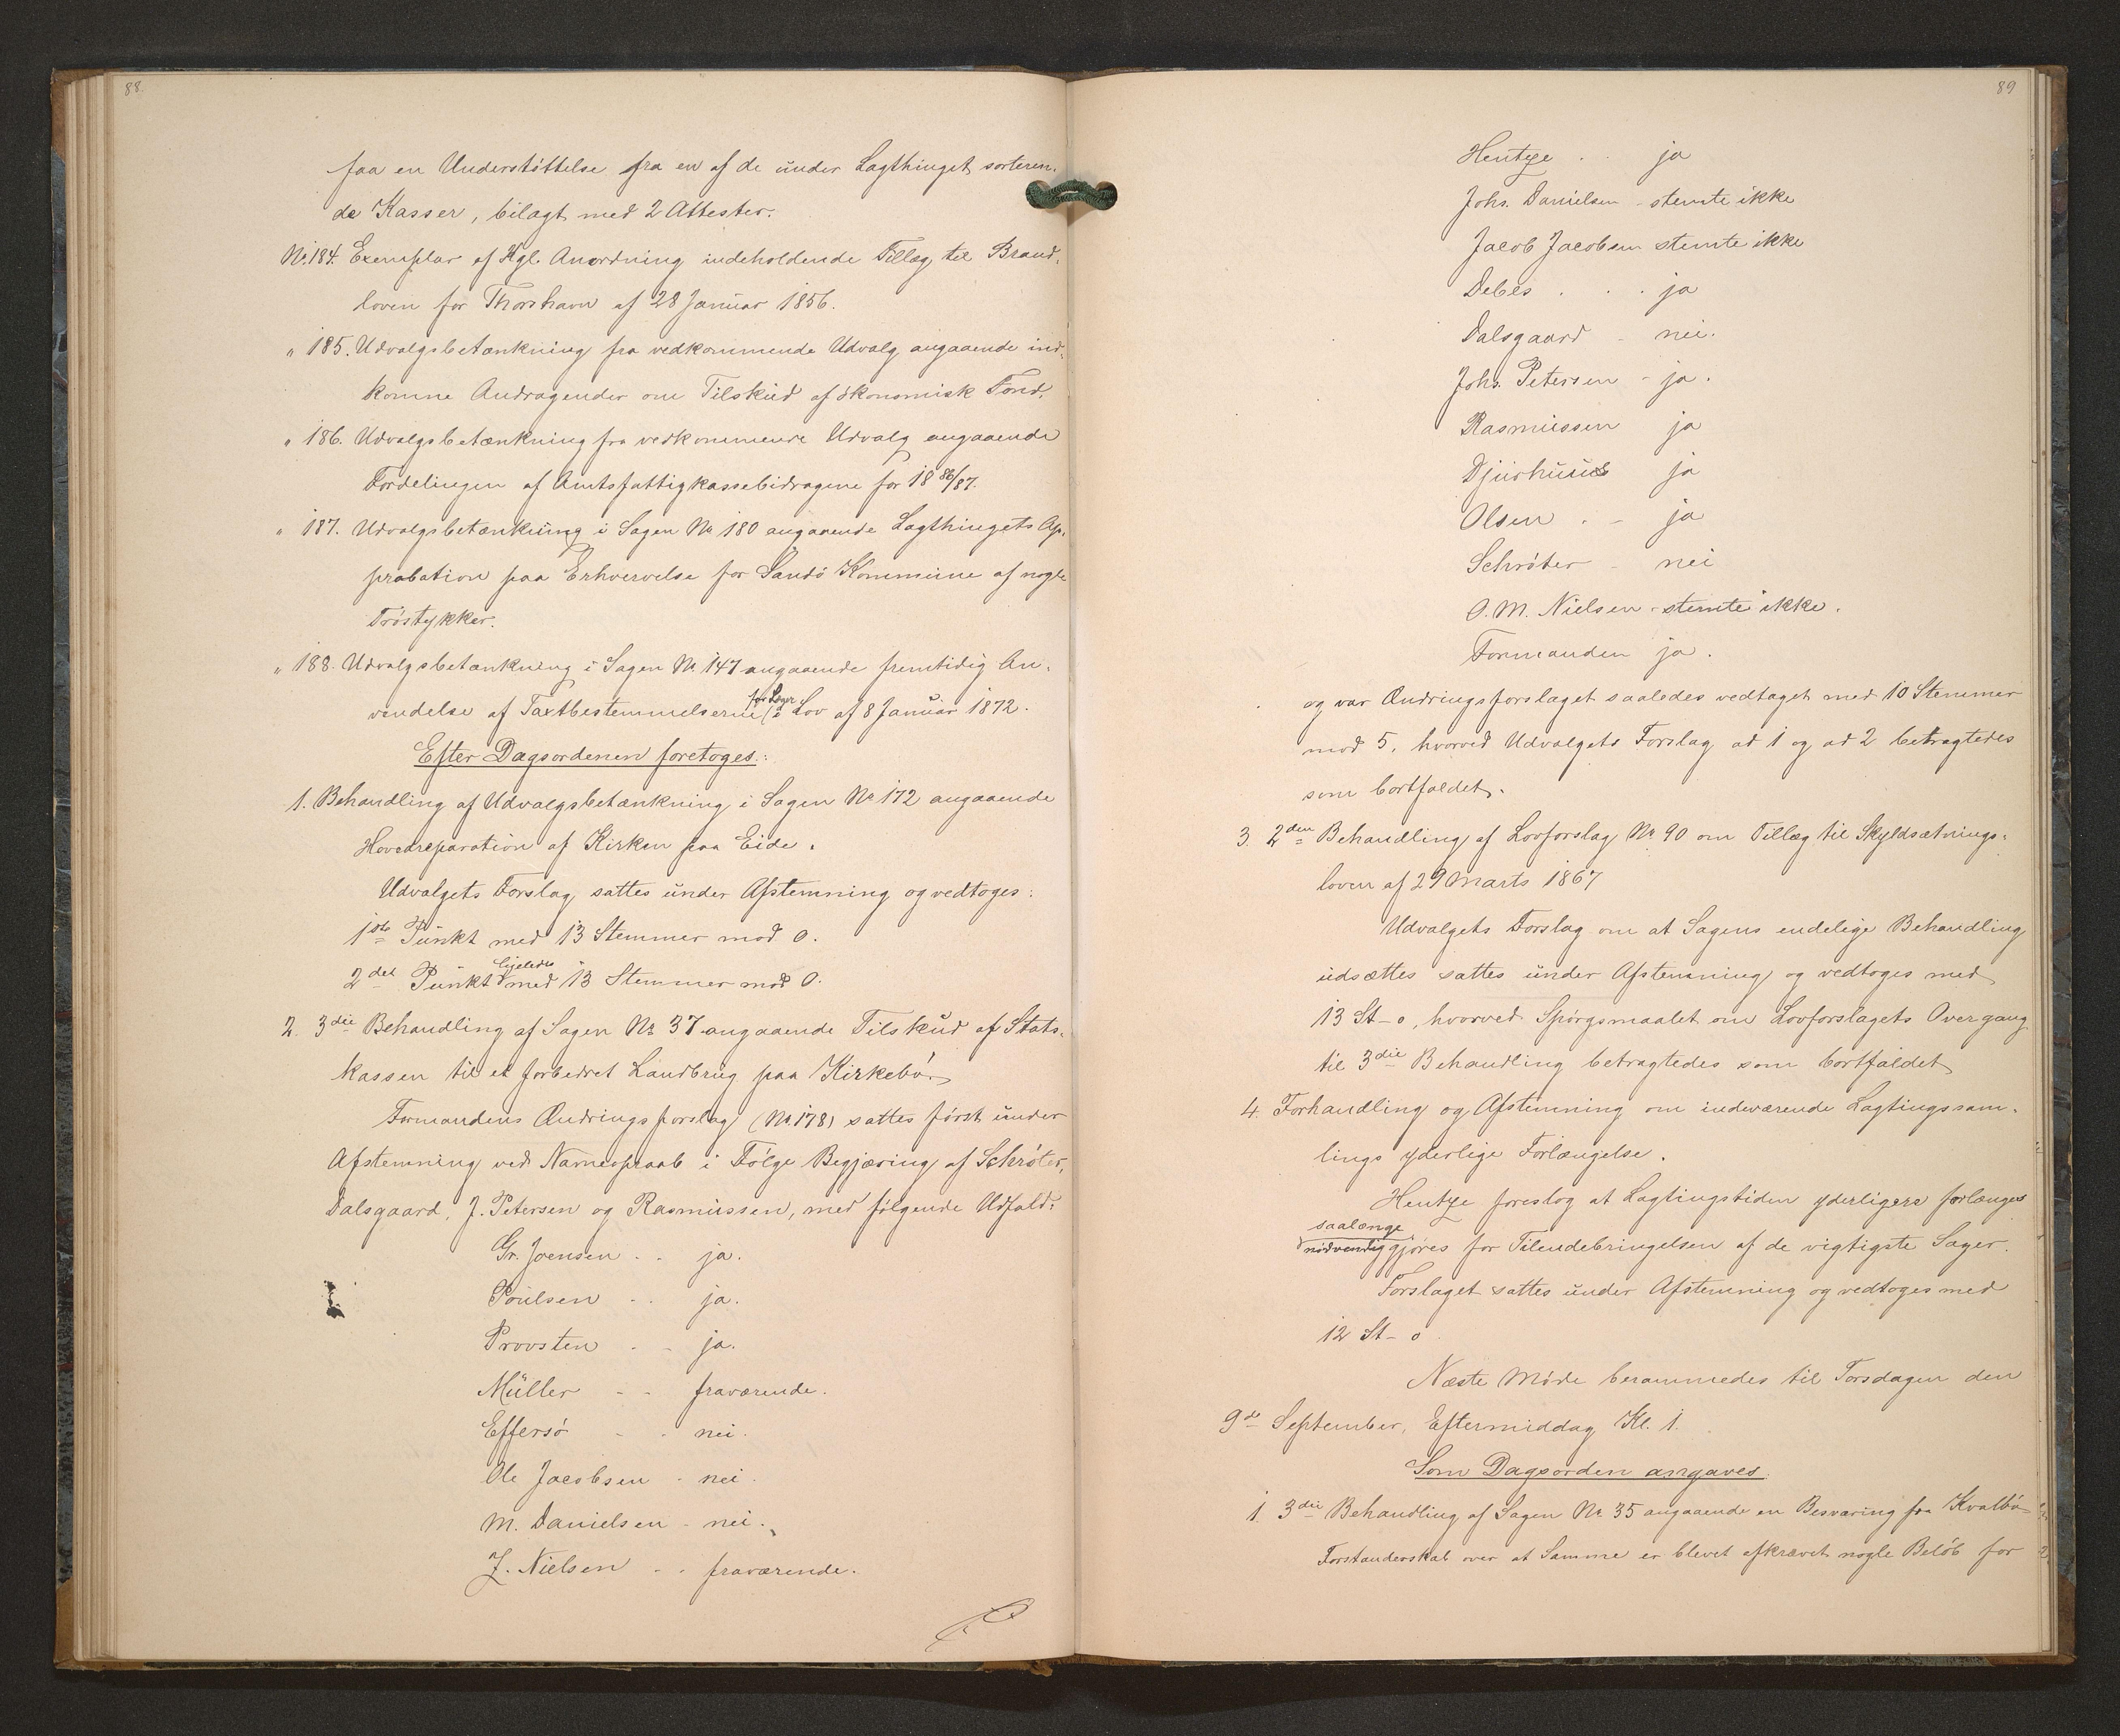 88.
faa en Understøttelse fra en af de under Lagthinget sorteren-
de Kasser, bilagt med 2 Attester.
No. 184. Exemplar af Kgl. Anordning indeholdende Tillæg til Brand-
loven for Thorshavn af 28 Januar 1856.
" 185. Udvalgsbetænkning fra vedkommende Udvalg angaaende ind-
komne Andragender om Tilskud af økonomisk Fond.
" 186. Udvalgsbetænkning fra vedkommende Udvalg angaaende
Fordelingen af Amtsfattigkassebidragene for 1886/87.
" 187. Udvalgsbetænkning i Sagen No 180 angaaende Lagthingets Ap-
probation paa Erhvervelse for Sandø Kommune af nogle
Trøstykker.
" 188. Udvalgsbetænkning i Sagen No. 147 angaaende fremtidig An-
vendelse af Taxtbestemmelserne for Læger i Lov af 8 Januar 1872.
Efter Dagsordenen foretoges:
1. Behandling af Udvalgsbetænkning i Sagen No 172 angaaende
Hovedreparation af Kirken paa Eide.
Udvalgets Forslag sattes under Afstemning og vedtoges:
1ste Punkt med 13 Stemmer mod 0.
2det Punkt ligeledes med 13 Stemmer mod 0.
2. 3die Behandling af Sagen No 37 angaaende Tilskud af Stats-
kassen til et forbedret Landbrug paa Kirkebø.
Formandens Ændringsforslag (No. 178) sattes først under
Afstemning ved Navneopraab i Følge Begjæring af Schrøter,
Dalsgaard, J. Petersen og Rasmussen, med følgende Udfald:
Gr. Joensen . . ja.
Poulsen - . ja.
Provsten . - ja.
Müller - - fraværende.
Effersø - . nei.
Ole Jacobsen - nei.
M. Danielsen - nei.
Z. Nielsen - . fraværende.
89
Hentze . . ja
Johs. Danielsen - stemte ikke
Jacob Jacobsen stemte ikke
Debes . . . ja
Dalsgaard - nei.
Johs. Petersen - ja.
Rasmussen ja
Djurhuus ja
Olsen . - ja
Schrøter - nei
O. M. Nielsen - stemte ikke.
Formanden ja.
og var Ændringsforslaget saaledes vedtaget med 10 Stemmer
mod 5, hvorved Udvalgets Forslag ad 1 og ad 2 betragtedes
som bortfaldet.
3. 2den Behandling af Lovforslag No. 90 om Tillæg til Skyldsætnings-
loven af 29 Marts 1867
Udvalgets Forslag om at Sagens endelige Behandling
udsættes sattes under Afstemning og vedtoges med
13 St - 0, hvorved Spørgsmaalet om Lovforslagets Overgang
til 3die Behandling betragtedes som bortfaldet
4. Forhandling og Afstemning om indeværende Lagtingssam-
lings yderlige Forlængelse.
Hentze foreslog at Lagtingstiden yderligere forlænges
saalænge
nødvendiggjøres for Tilendebringelsen af de vigtigste Sager.
Forslaget sattes under Afstemning og vedtoges med
12 St - 0
Næste Møde berammedes til Torsdagen den
9de September, Eftermiddag Kl. 1.
Som Dagsorden angaves.
1. 3die Behandling af Sagen No. 35 angaaende en Besværing fra Kvalbø-
Forstanderskab over at Samme er blevet afkrævet nogle Beløb for